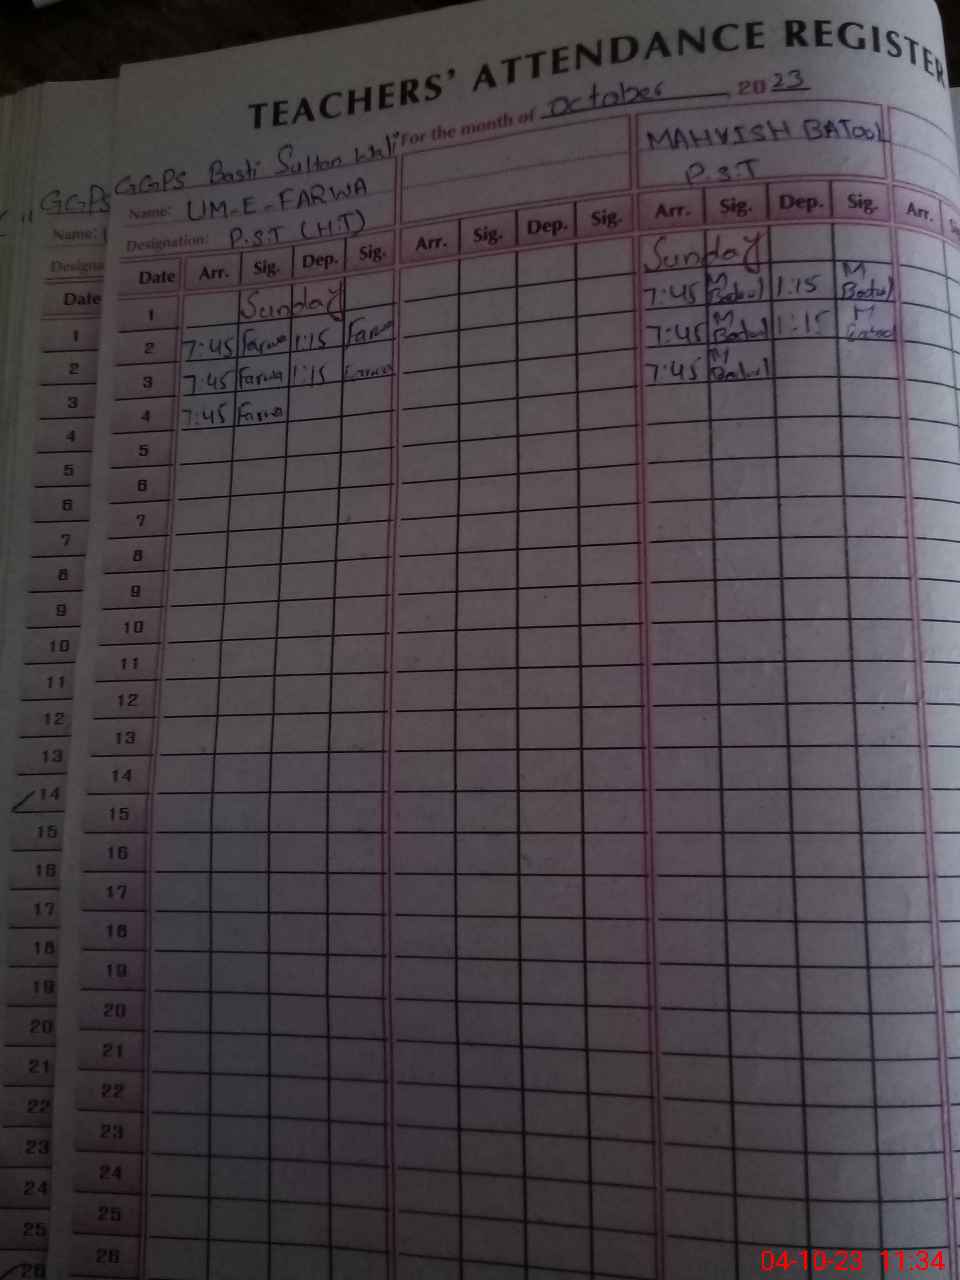 TEACHERS' ATTENDANCE REGISTER
For the month of October 2023
GGPS GGPS Basti Sultan Wali
MAHVISH BATOOL
Name: Name: UM-E-FARWA
P.S.T
Designa Designation: P.S.T (H.T)
Date Date Arr. Sig. Dep. Sig. Arr. Sig. Dep. Sig. Arr. Sig. Dep. Sig. Arr.
1 Sunday Sunday
2 7:45 Farwa 1:15 Farwa 7:45 M Batool 1:15 M Batool
3 7:45 Farwa 1:15 Farwa 7:45 M Batool 1:15 M Batool
4 7:45 Farwa 7:45 M Batool
5
6
7
8
9
10
11
12
13
14
15
16
17
18
19
20
21
22
23
24
25
26
1
2
3
4
5
6
7
8
9
10
11
12
13
14
15
16
17
18
19
20
21
22
23
24
25
26
04-10-23 11:34